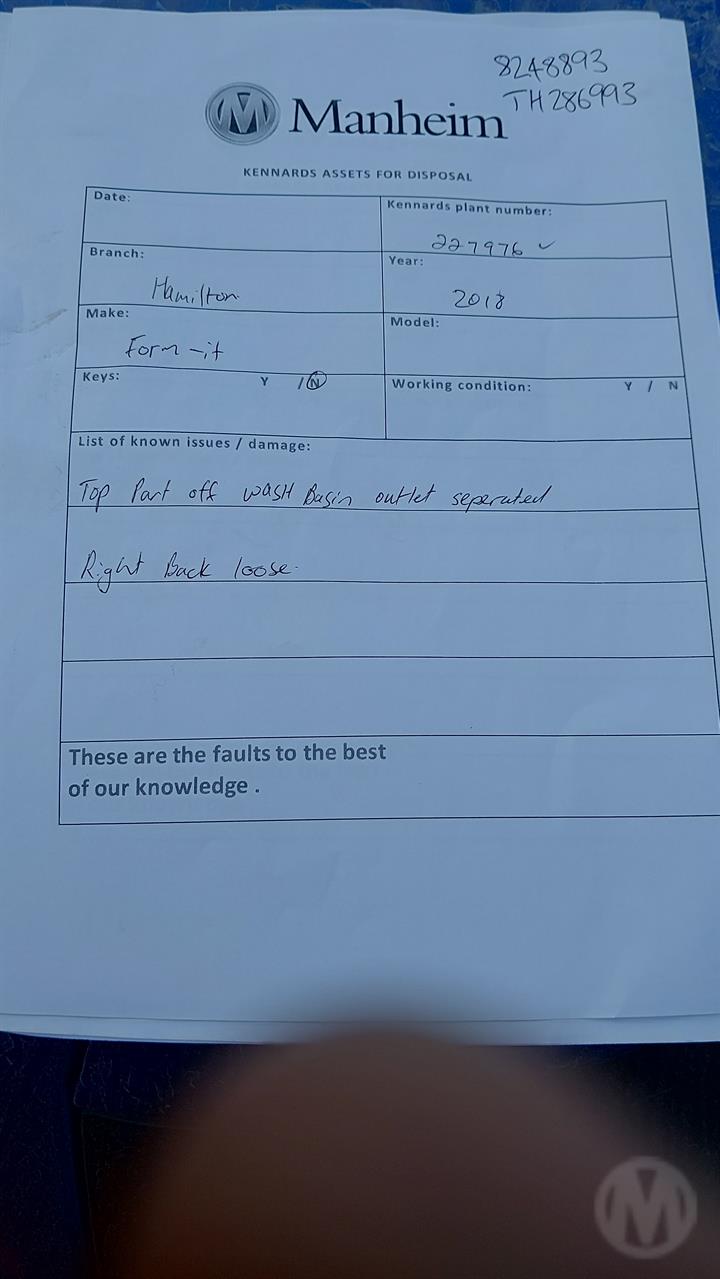 8248893
TH286993
M Manheim
KENNARDS ASSETS FOR DISPOSAL
Date:
Kennards plant number:
227976 ✓
Branch:
Hamilton
Year:
2018
Make:
Form-it
Model:
Keys: Y / N
Working condition: Y / N
List of known issues / damage:
Top Part off wash Basin outlet seperated
Right Back loose.
These are the faults to the best
of our knowledge .
M